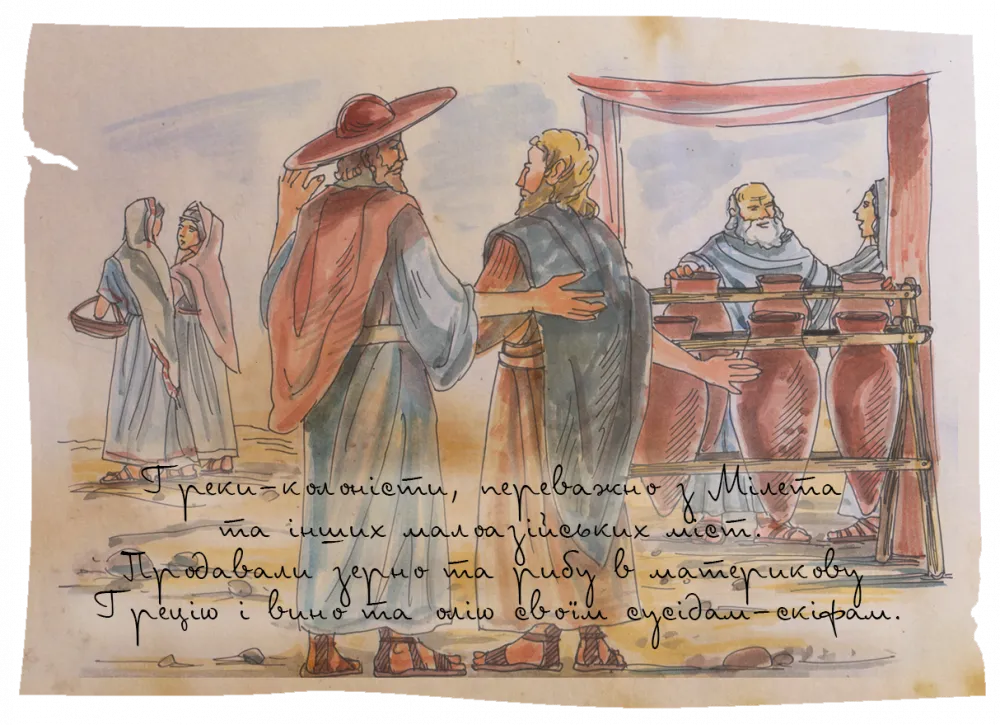 Греки-колоністи, переважно з Мілета
та інших малоазійських міст.
Продавали зерно та рибу в материкову
Грецію і вино та олію своїм сусідам-скіфам.